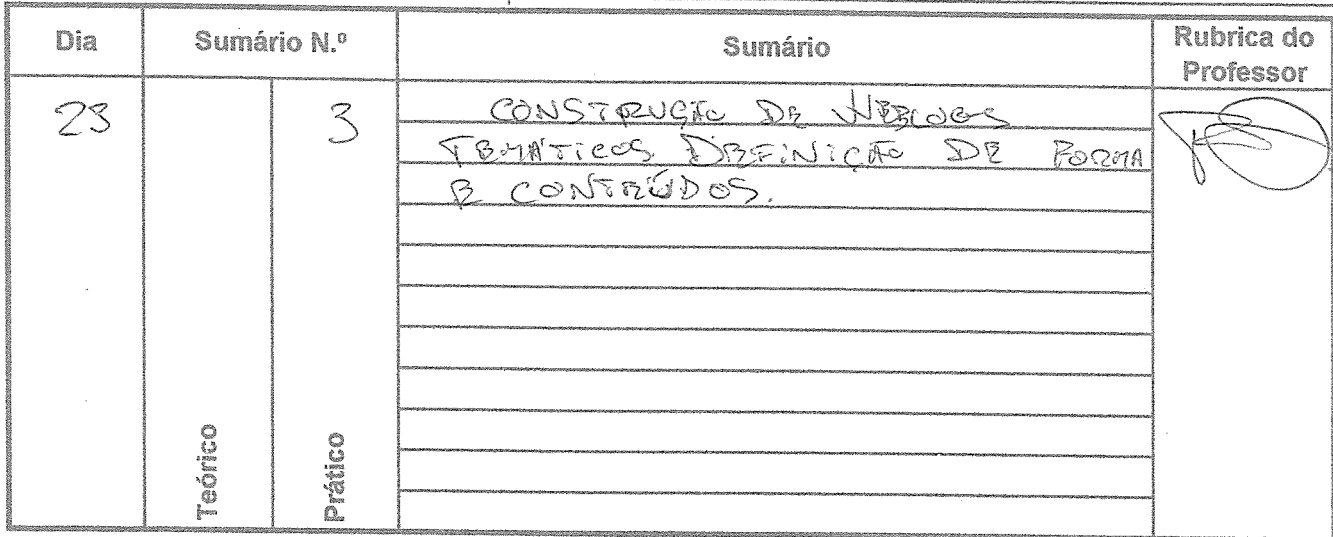 Dia Sumário N.º Sumário Rubrica do Professor
23 3 CONSTRUÇÃO DE WEBLOGS
TEMÁTICOS. DEFINIÇÃO DE FORMA
E CONTEÚDOS.
Teórico Prático